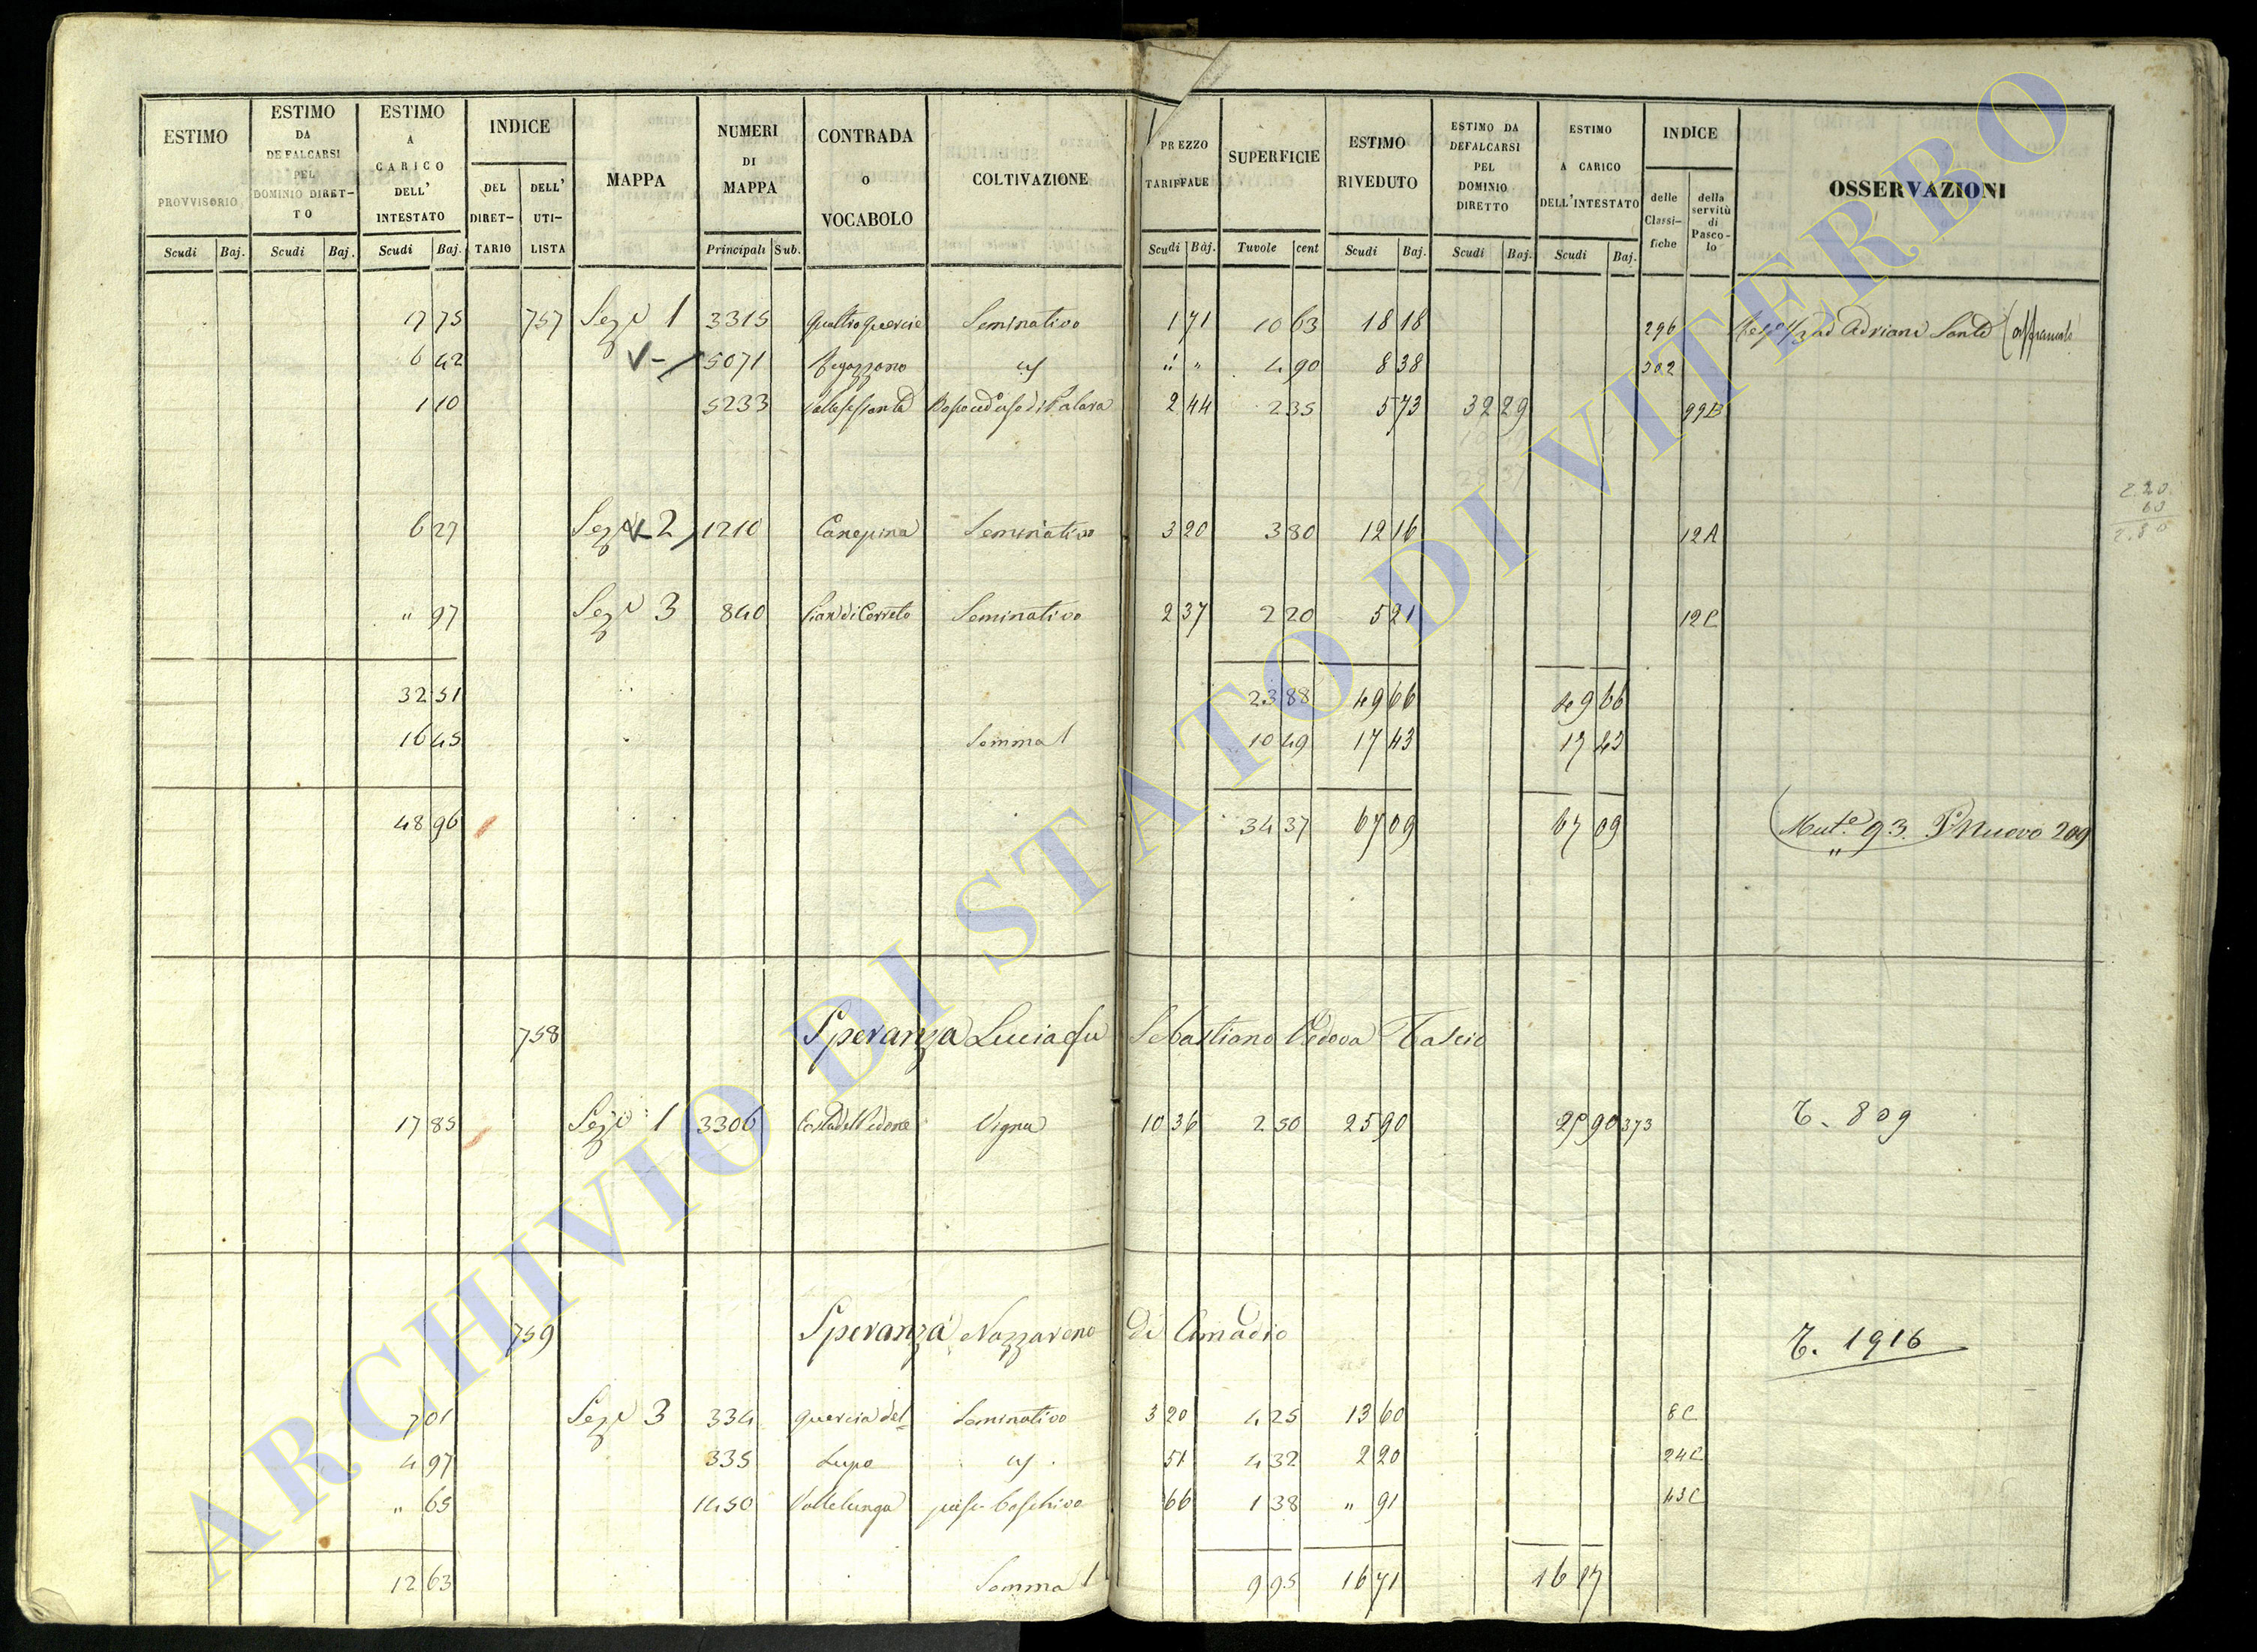 ESTIMO PROVVISORIO ESTIMO DA DEFALCARSI PEL DOMINIO DIRETTO ESTIMO A CARICO DELL' INTESTATO INDICE DEL DIRETTARIO DELL' UTILISTA MAPPA NUMERI DI MAPPA CONTRADA O VOCABOLO COLTIVAZIONE PREZZO TARIFFALE SUPERFICIE ESTIMO RIVEDUTO ESTIMO DA DEFALCARSI PEL DOMINIO DIRETTO ESTIMO A CARICO DELL'INTESTATO INDICE delle Classifiche della servitù di Pascolo OSSERVAZIONI
Scudi Baj. Scudi Baj. Scudi Baj. Principali Sub. Scudi Baj. Tavole cent Scudi Baj. Scudi Baj. Scudi Baj.
17 75 757 Sez. 1 3315 Quattro Quercie Seminativo 1 71 10 63 18 18 296 ad Adriani Santi
6 42 5071 " " 4 90 8 38 302
1 10 5233 2 44 2 35 5 73 32 29 99B
6 27 Sez. 2 1210 Canepina Seminativo 3 20 3 80 12 16 12A
" 97 Sez. 3 840 Pian di Cerreto Seminativo 2 37 2 20 5 21 12C
32 51 23 88 49 66 49 66
16 45 Somma 1 10 49 17 43 17 43
48 96 34 37 67 09 67 09 Mut.e 93. P. Nuovo 209
758 Speranza Lucia fu Sebastiano Vedova Tascio
17 85 Sez. 1 3306 Vigna 10 36 2 50 25 90 25 90 373 T. 809
759 Speranza Nazzareno di Amadio T. 1916
7 01 Sez. 3 334 Quercia del Seminativo 3 20 4 25 13 60 8C
4 97 335 Lupo 51 4 32 2 20 24C
" 65 1450 Vallelunga pasc. boschivo 66 1 38 " 91 43C
12 63 Somma 1 9 95 16 71 16 17
ARCHIVIO DI STATO DI VITERBO